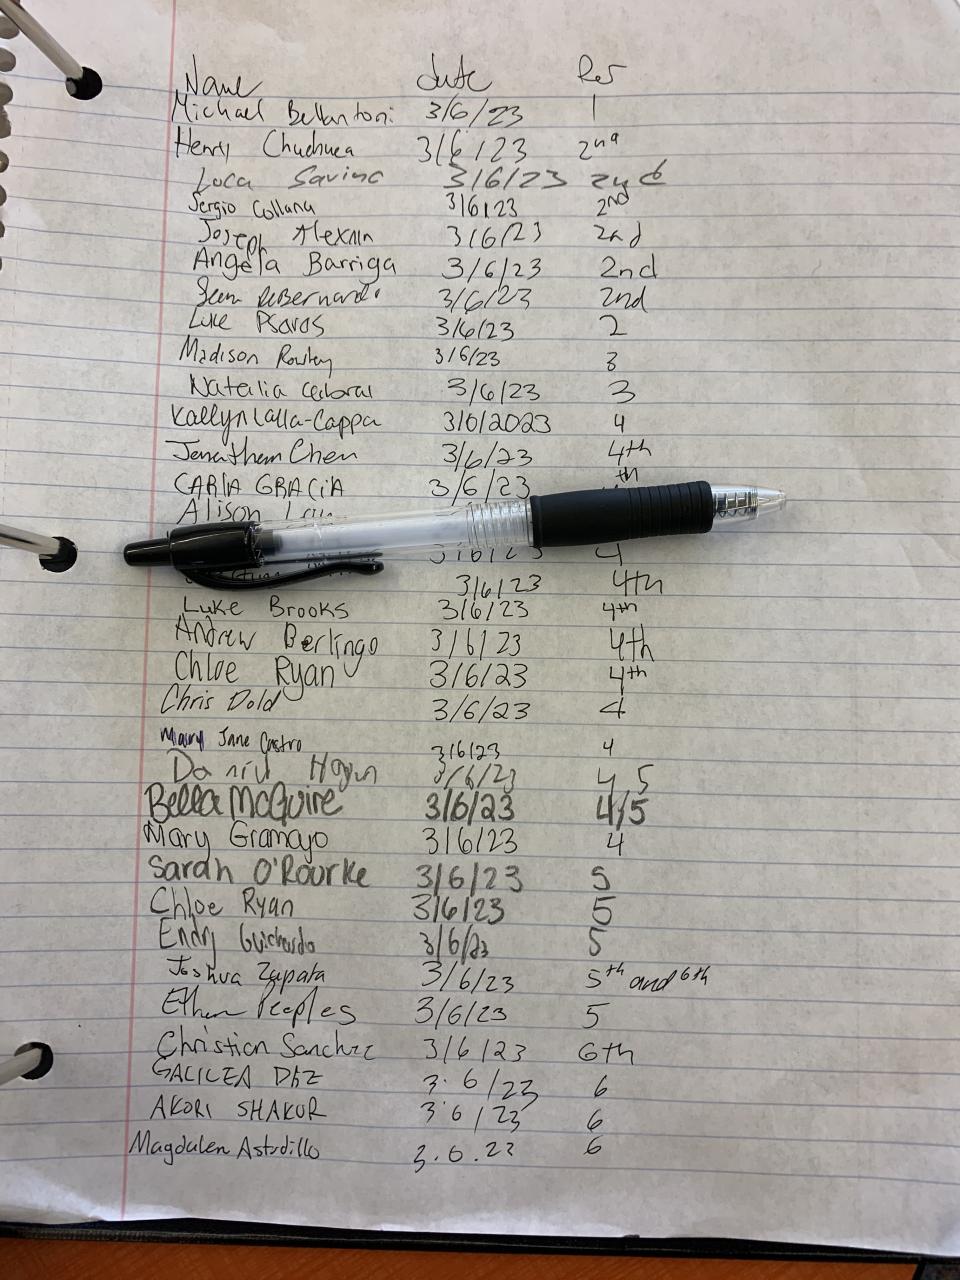 Name date Per
Michael Bellantoni 3/6/23 1
Henry Chuchuca 3/6/23 2nd
Luca Savino 3/6/23 2nd
Sergio Collana 3/6/23 2nd
Joseph 3/6/23 2nd
Angela Barriga 3/6/23 2nd
Sean DeBernardo 3/6/23 2nd
Luke Psaros 3/6/23 2
Madison 3/6/23 3
Natalia Cabral 3/6/23 3
Kaelyn Lalla-Cappa 3/6/2023 4
Jonathan Chen 3/6/23 4th
CARLA GRACIA 3/6/23 th
Alison
3/6/23 4
3/6/23 4th
Luke Brooks 3/6/23 4th
Andrew Berlingo 3/6/23 4th
Chloe Ryan 3/6/23 4th
Chris Dold 3/6/23 4
Mary Jane Castro 3/6/23 4
Daniel 3/6/23 4 5
Bella McGuire 3/6/23 4/5
Mary Gramayo 3/6/23 4
Sarah O'Rourke 3/6/23 5
Chloe Ryan 3/6/23 5
Endry Guichardo 3/6/23 5
Joshua Zapata 3/6/23 5th and 6th
Ethan Peeples 3/6/23 5
Christian Sanchez 3/6/23 6th
GALILEA 3.6/23 6
AKORI SHAKUR 3.6/23 6
Magdalen Astudillo 3.6.23 6